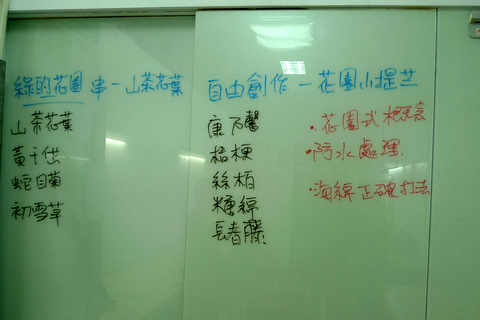 綠的花圈 串一山茶花葉
山茶花葉
黃千岱
蛇目菊
初雪草
自由創作一花園小提芝
康乃馨
桔梗
絲柏
米香綿
長春藤
•花園式概念
•防水處理
•海綿正確打法